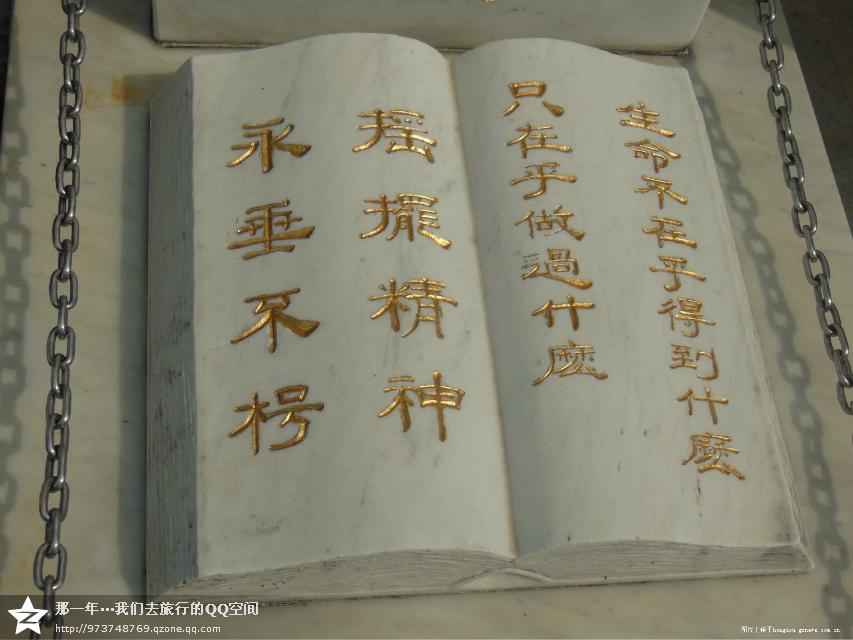 生命不在乎得到什麼
只在乎做過什麼
摇擺精神
永垂不枵
那一年…我们去旅行的QQ空间
http://973748769.qzone.qq.com